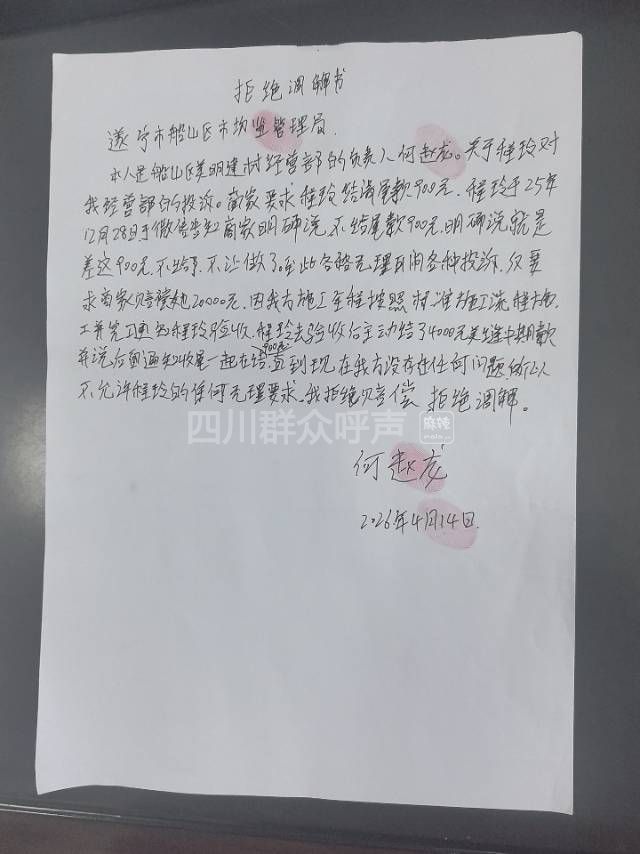 拒绝调解书
遂宁市船山区市场监管管理局
本人是船山区美明建材经营部的负责人何赵龙。关于程玲对
我经营部的投诉。商家要求程玲结清尾款900元，程玲于25年
12月28日于微信告知商家明确说，不结尾款900元，明确说就是
差这900元，不给了，不让做了，至此各路无理由间各种投诉，仅要
求商家赔偿她20000元，因我方施工全程按照标准施工流程
工并完工通知程玲验收，程玲去验收后主动结了4000元美缝中期款
900元
并说后面通知收尾一起在结，直到现在我方没存在任何问题所以
不允许程玲的任何无理要求，我拒绝赔偿 拒绝调解。
四川群众呼声
麻辣
mala.cn
何赵龙
2026年4月14日.